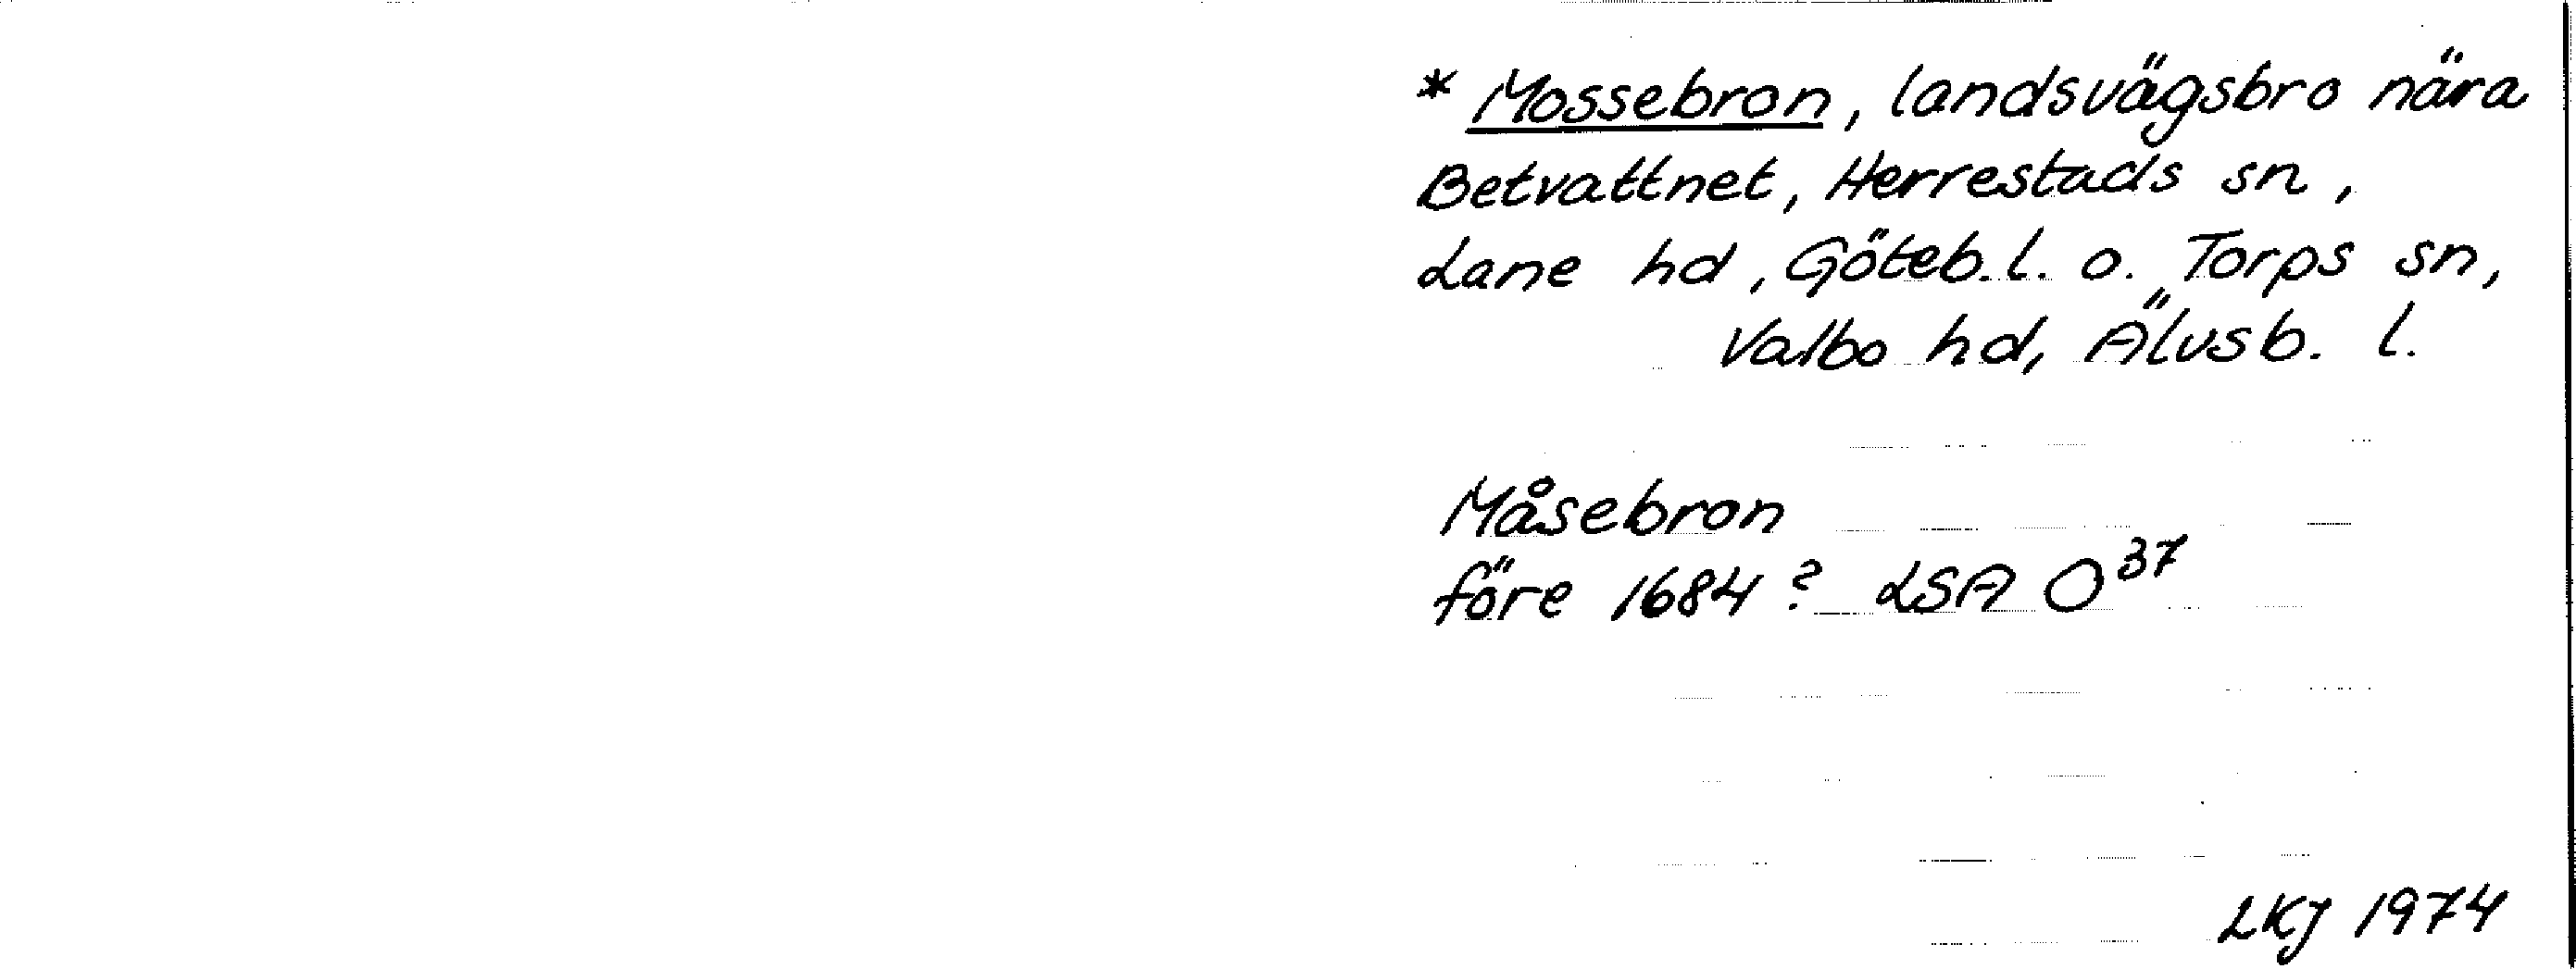 * Mossebron, landsvägsbro nära
Betvattnet, Herrestads sn,
Lane hd, Göteb. l. o. Torps sn,
Valbo hd, Älvsb. l.
Måsebron
före 1684? LSA O37
LKJ 1974